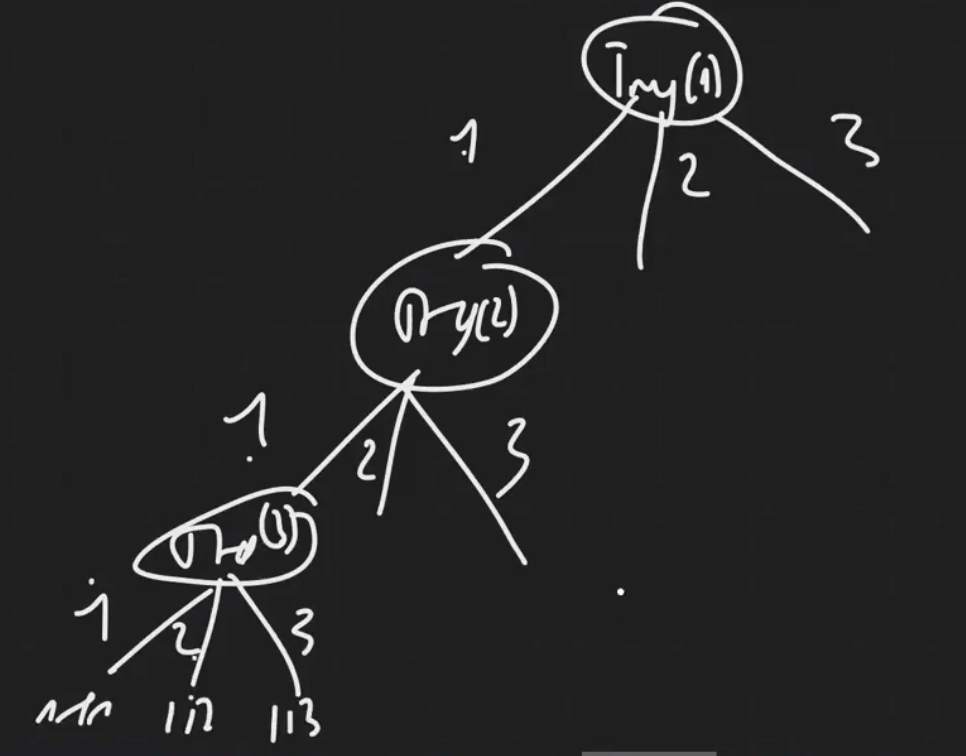 Try(1)
1 2 3
Try(2)
1 2 3
Try(3)
1 2 3
111 112 113